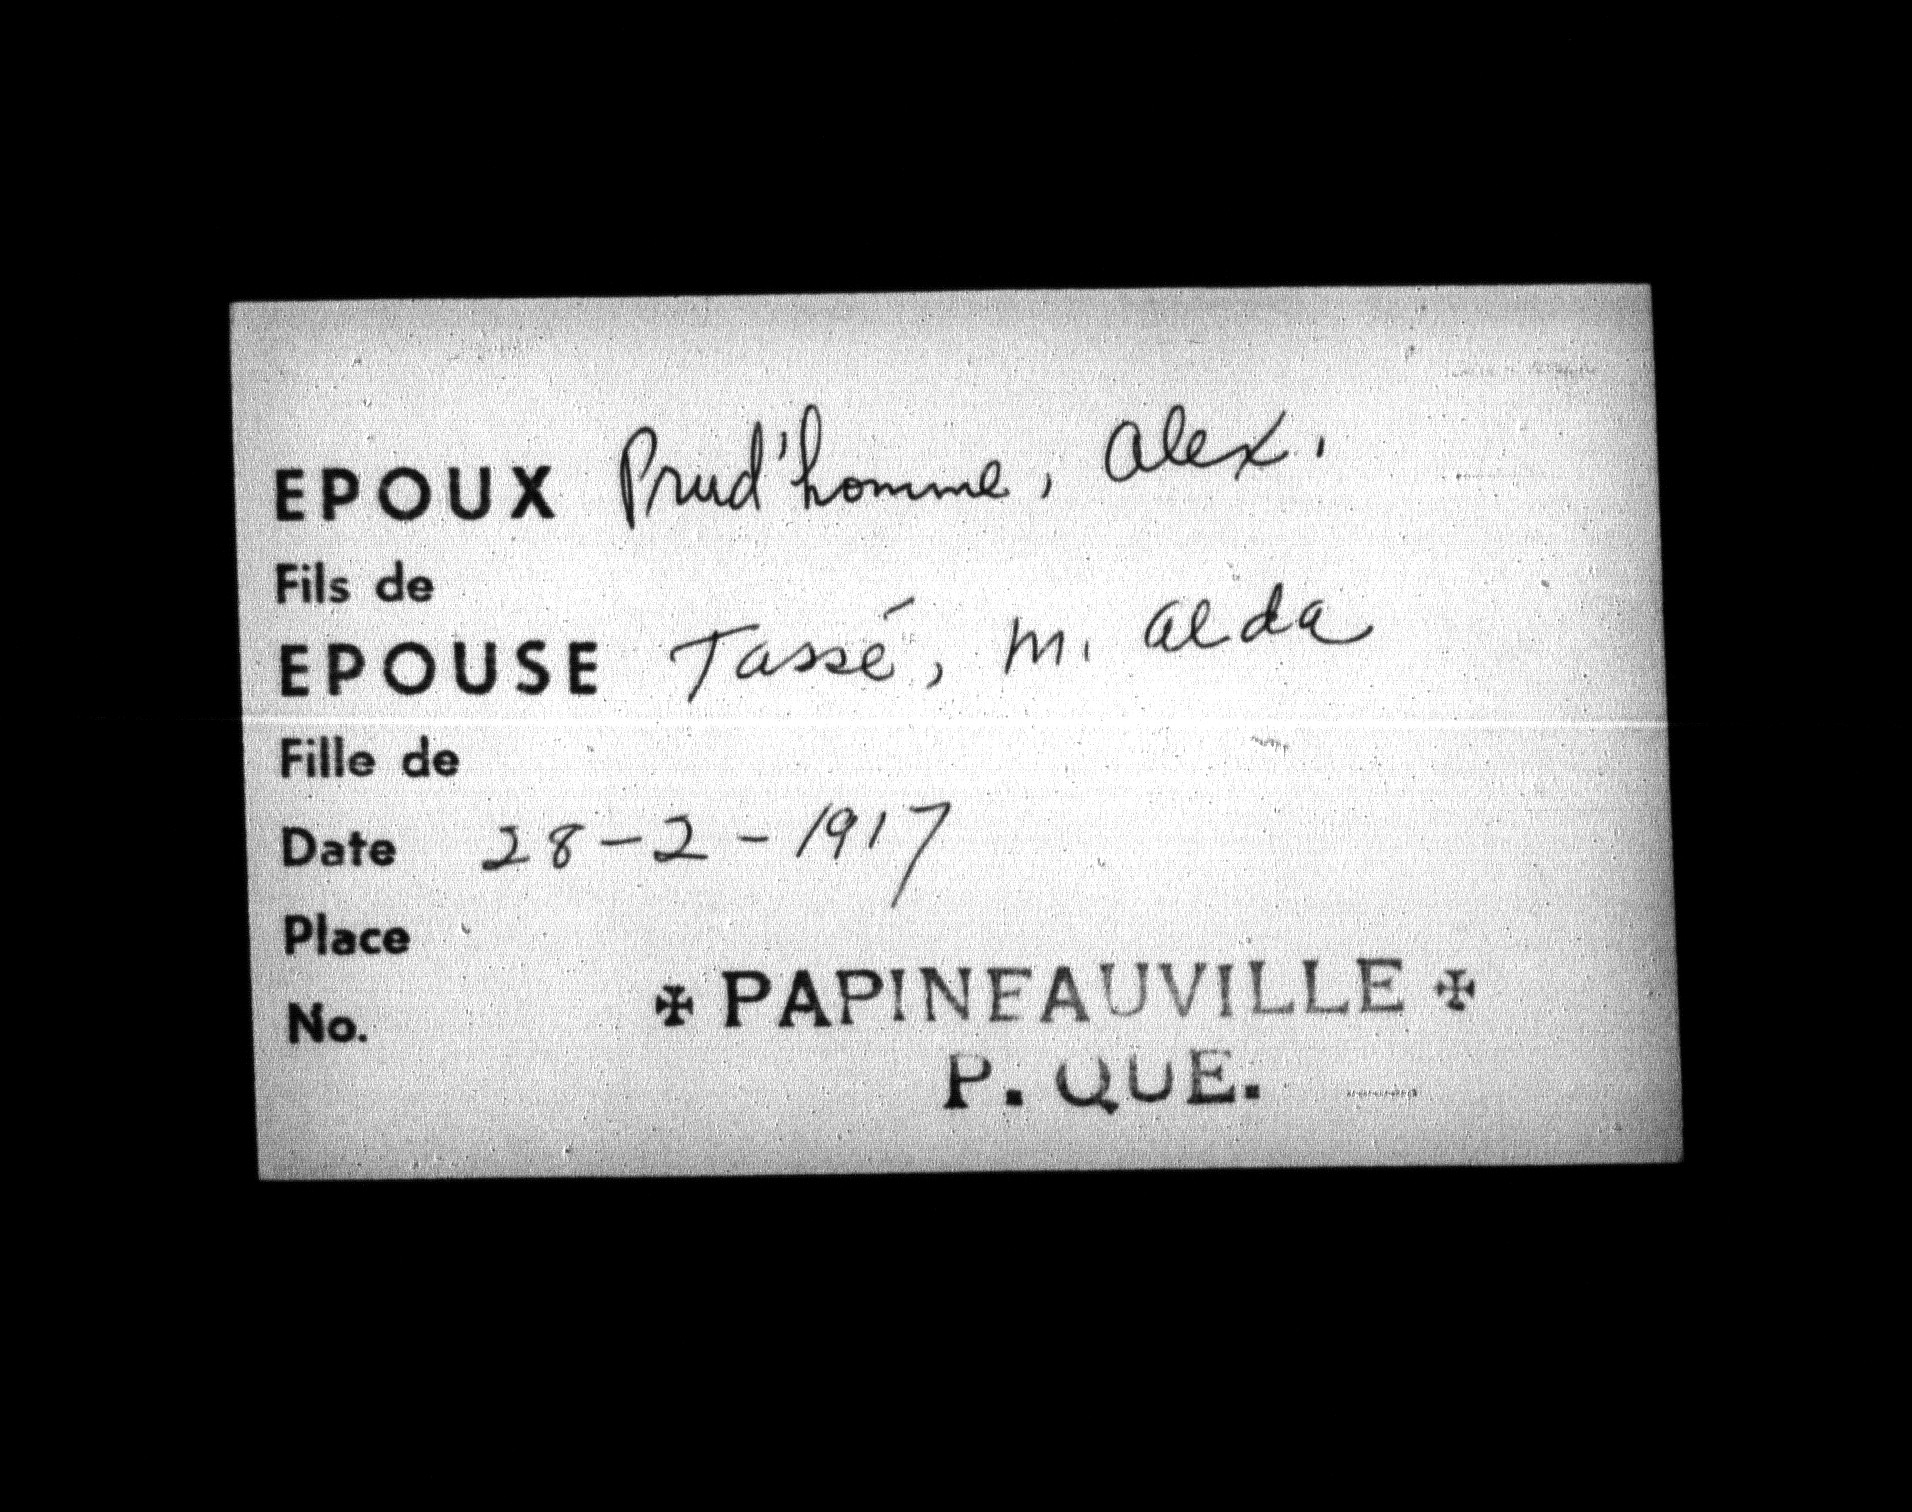 EPOUX Prud'homme, Alex.
Fils de
EPOUSE Tassé, M. Alda
Fille de
Date 28-2-1917
Place
No.
✠ PAPINEAUVILLE ✠
P. QUE.